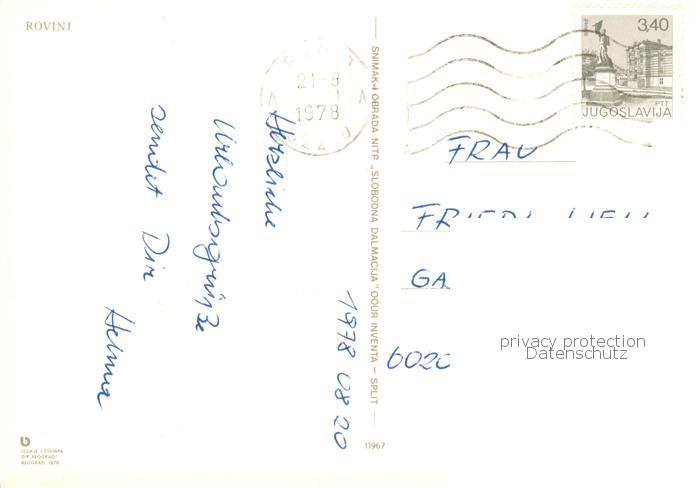 ROVINJ
Herzliche
Urlaubsgrüße
sendet Dir
Helma
1978 08 20
21-8
1978
SNIMAK I OBRADA NITP „SLOBODNA DALMACIJA" OOUR INVENTA — SPLIT
11967
IZDAJE I ŠTAMPA
DIP „BEOGRAD"
BEOGRAD, 1978
3,40
PTT
JUGOSLAVIJA
FRAU
GA
6020
privacy protection
Datenschutz